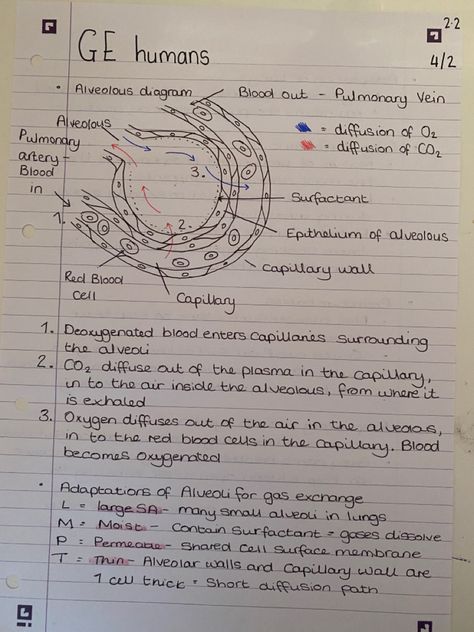 2.2
4/2
GE humans
• Alveolous diagram
Blood out - Pulmonary Vein
Alveolous
Pulmonary
artery -
Blood
in
= diffusion of O2
= diffusion of CO2
3.
Surfactant
1.
2.
Epithelium of alveolous
Capillary wall
Red Blood
Cell
Capillary
1. Deoxygenated blood enters capillaries surrounding
the alveoli
2. CO2 diffuse out of the plasma in the capillary,
in to the air inside the alveolous, from where it
is exhaled
3. Oxygen diffuses out of the air in the alveolous,
in to the red blood cells in the capillary. Blood
becomes oxygenated
• Adaptations of Alveoli for gas exchange
L = large SA - many small alveoli in lungs
M = Moist - Contain Surfactant = gases dissolve
P = Permeable - Shared Cell Surface membrane
T = Thin - Alveolar walls and Capillary Wall are
1 cell thick = Short diffusion path